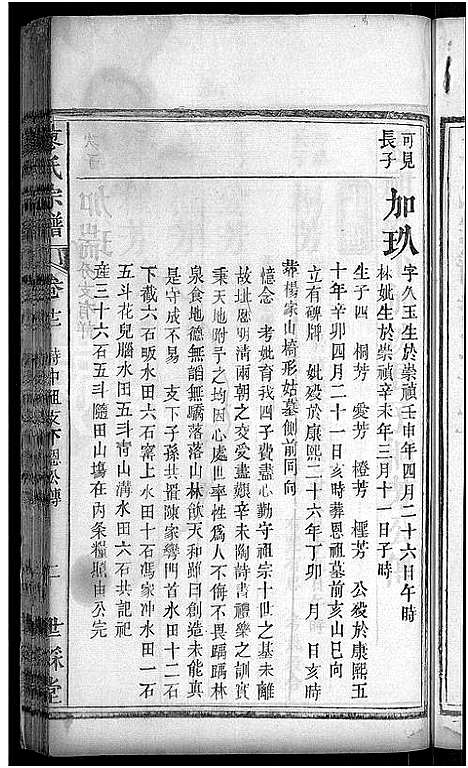 可見
長子
加玖
字久玉生於崇禎壬申年四月二十六日午時
林妣生於崇禎辛未年三月十一日子時
生子四 桐芳 愛芳 橙芳 檉芳 公歿於康熙五
十年辛卯四月二十一日亥時葬恩祖墓前亥山巳向
立有碑牌 妣歿於康熙二十六年丁卯 月 日亥時
葬楊家山椅形姑墓側前同向
憶念 考妣育我四子費盡心勤守祖宗十世之基未離
故址歷明清兩朝之交受盡艱辛未陶詩書禮樂之訓實
秉天地附予之均因心處世率性為人不侮不畏踽踽林
泉食地德無諂無驕落落山林飲天和雖曰創造未能真
是守成不易 支下子孫共置陳家彎門首水田十二石
下截六石畈水田六石甯上水田十石馮家冲水田一石
五斗花兒腦水田五斗青山溝水田六石共記祀
產三十六石五斗隨田山塲在內条糧照由公完
氏宗譜
卷 時中祖支下恩公傳
二
世綵堂
加瑞